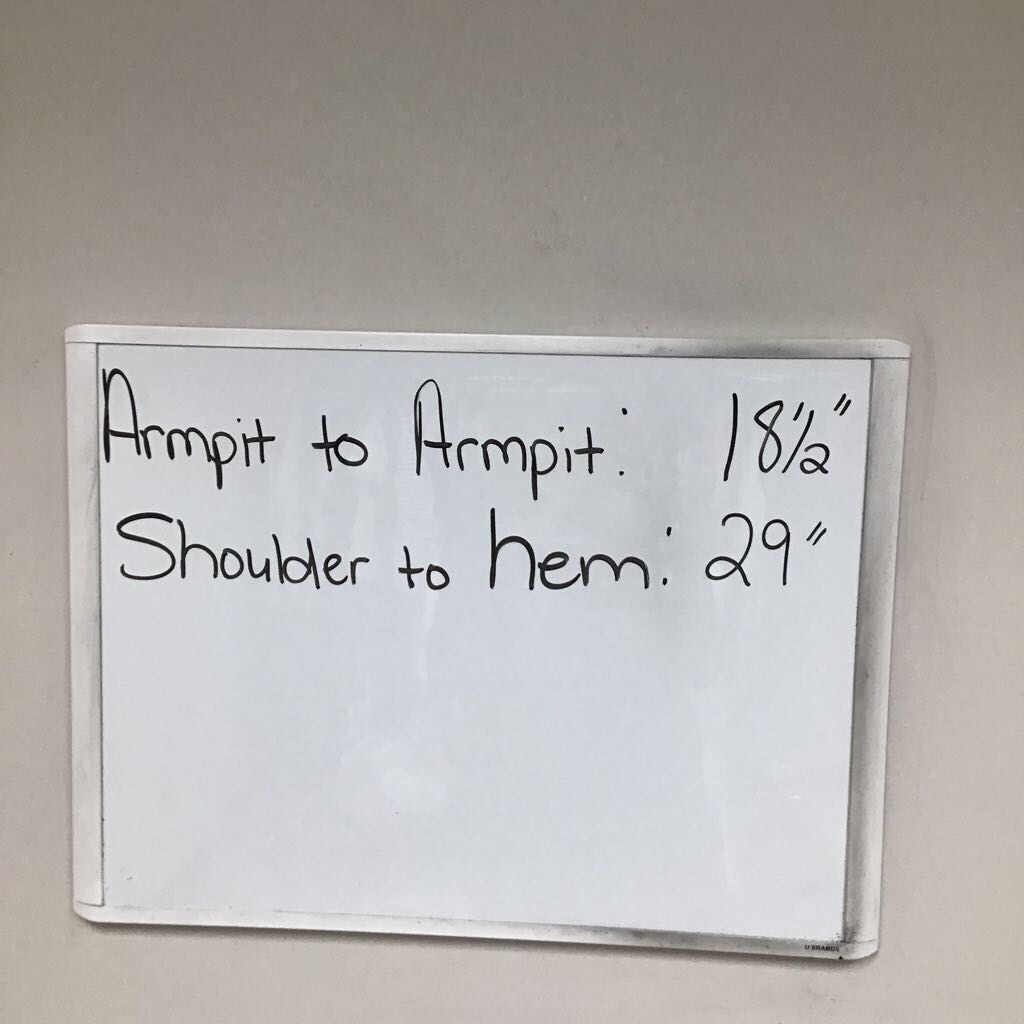 Armpit to Armpit: 18½"
Shoulder to hem: 29"
U BRANDS